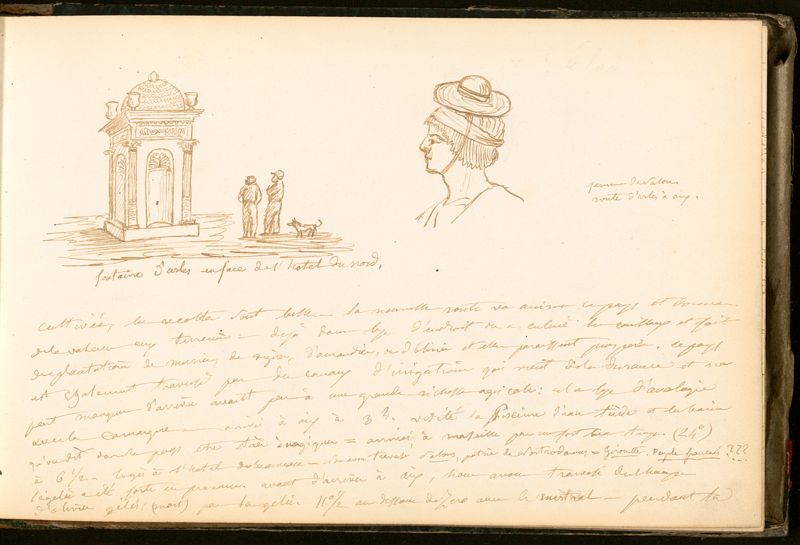 femme de Salon
route d'arles à aix.
fontaine d'arles en face de l'hotel du nord.
cultivées, les recoltes sont belles — la nouvelle route va animer ce pays et donner
de la valeur aux terrains — déjà dans bp d'endroit on a enlevé les cailloux et fait
des plantations de muriers, de vignes, d'amandiers, ou d'oliviers et elles paraissent prosperer. ce pays
est également traversé par des canaux d'irrigation qui vient de la Durance et ne
peut manquer d'arriver avant peu à une grande richesse agricole: il a bp d'analogie
avec la Camargue — arrivé à aix à 3 h. visité la piscine d'eau tiède et les bains
qu'on dit dans le pays être très = arrivés à marseille par un fort beau temps. (24°)
à 6 ½ — logé à l'hotel — nous avons traversé Salon, patrie de Nostradamus = Girouette. ???
la gelée a été forte en provence. avant d'arriver à aix, nous avons traversé des champs
d'olivier gelés (morts) par la gelée. 11° ½ au dessous de zero avec le mistral — pendant la